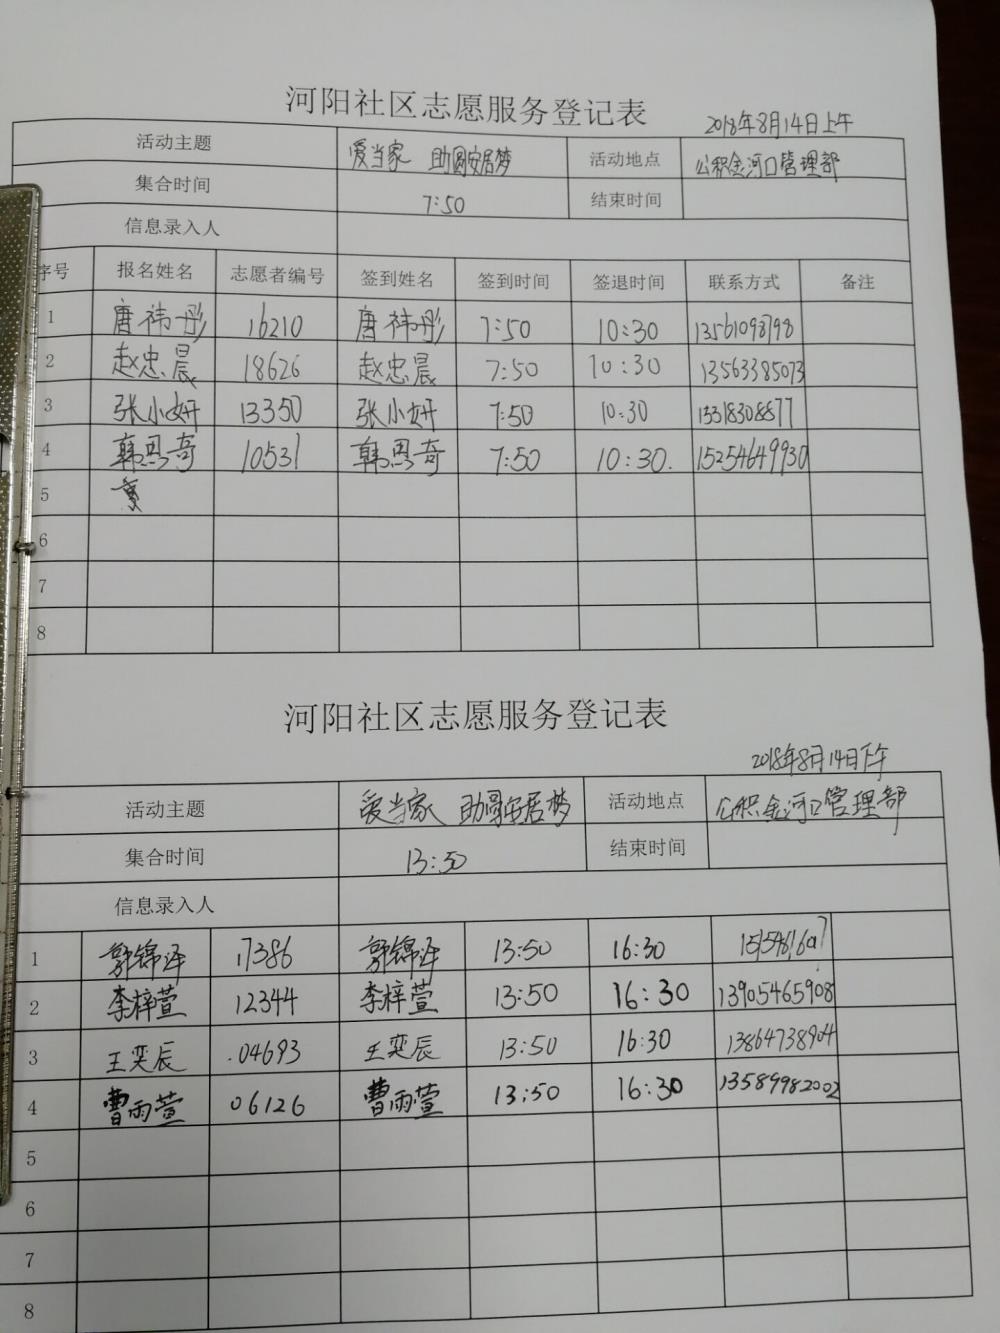 河阳社区志愿服务登记表
2018年8月14日上午
活动主题 爱当家 助圆安居梦 活动地点 公积金河口管理部
集合时间 7:50 结束时间
信息录入人
序号 报名姓名 志愿者编号 签到姓名 签到时间 签退时间 联系方式 备注
1 唐祎彤 16210 唐祎彤 7:50 10:30
2 赵忠晨 18626 赵忠晨 7:50 10:30 13563385073
3 张小妍 13350 张小妍 7:50 10:30
4 韩恩奇 10531 韩恩奇 7:50 10:30. 15254649930
5
6
7
8
河阳社区志愿服务登记表
2018年8月14日下午
活动主题 爱当家 助圆安居梦 活动地点 公积金河口管理部
集合时间 13:50 结束时间
信息录入人
1 郭锦泽 17386 郭锦泽 13:50 16:30
2 李梓萱 12344 李梓萱 13:50 16:30 13905465908
3 王奕辰 04693 王奕辰 13:50 16:30 13864738904
4 曹雨萱 06126 曹雨萱 13:50 16:30 13589982002
5
6
7
8